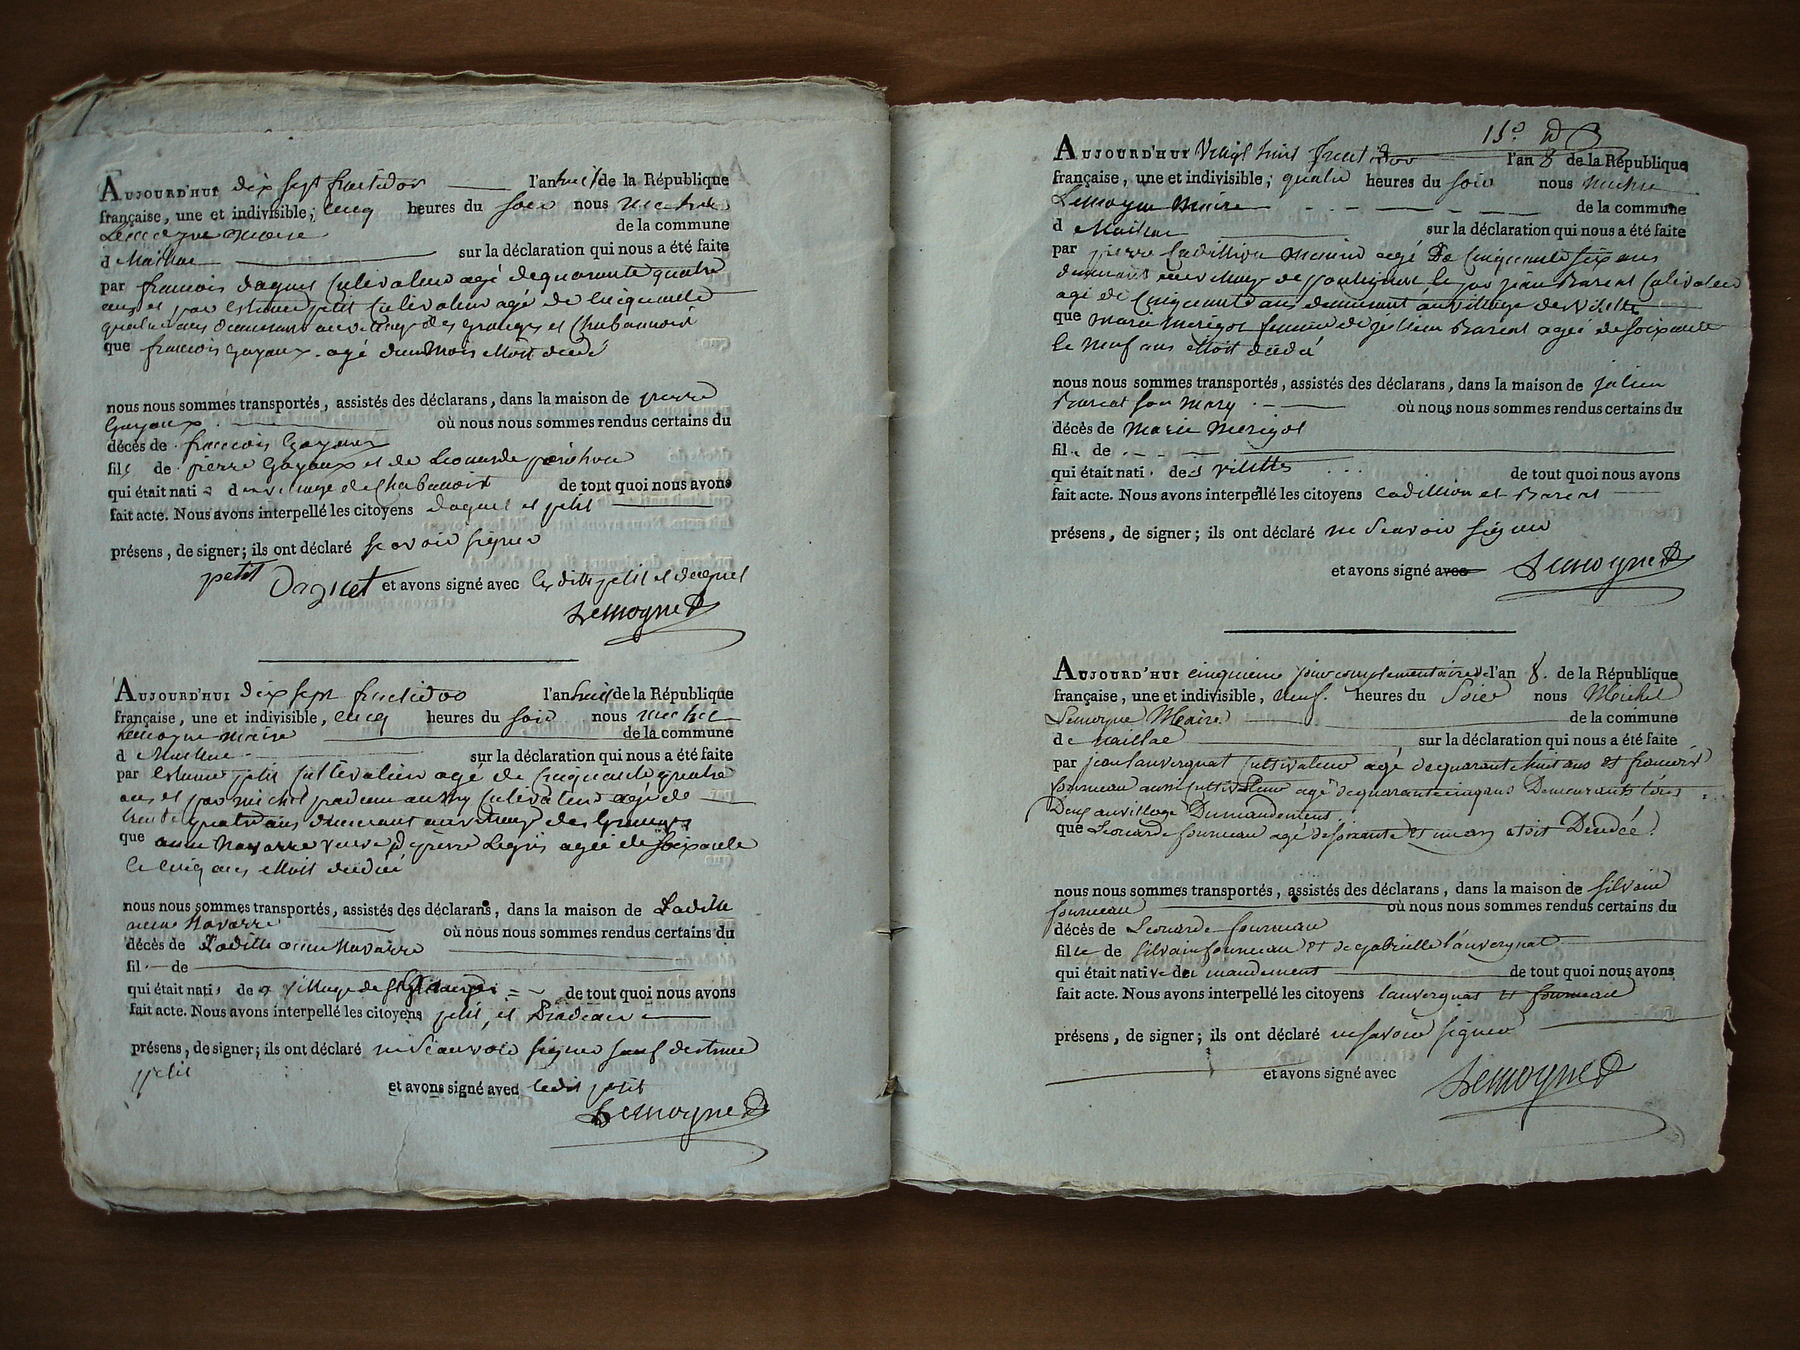 Aujourd'hui dix sept fructidor l'an huit de la République
française, une et indivisible, cinq heures du soir nous michel
Lemoyne maire de la commune
d Mailhac sur la déclaration qui nous a été faite
par francois daquet Cultivateur agé de quarante quatre
ans et par estienne petit Cultivateur agé de cinquante
quatre ans demeurant au village des granges et Chabannoix
que francois Gayaux agé d'un Mois ettoit decedé
nous nous sommes transportés, assistés des déclarans, dans la maison de pierre
Gayaux où nous nous sommes rendus certains du
décès de francois Gayaux
fils de pierre Gayaux et de Leonarde
qui était nati du village de Chabanoix de tout quoi nous avons
fait acte. Nous avons interpellé les citoyens daquet et petit
présens, de signer; ils ont déclaré scavoir signer
petit Daquet et avons signé avec les dits petit et daquet
Lemoyne
Aujourd'hui dix sept fructidor l'an huit de la République
française, une et indivisible, cinq heures du soir nous michel
Lemoyne maire de la commune
d Mailhac sur la déclaration qui nous a été faite
par estienne petit Cultivateur agé de Cinquante quatre
ans et par michel pradeau aussy Cultivateur agé de
trente quatre ans demeurant au village des Granges
que anne Navarre veuve de pierre Legris agée de soixante
le cinq ans ettoit decedée
nous nous sommes transportés, assistés des déclarans, dans la maison de Ladille
anne Navarre où nous nous sommes rendus certains du
décès de Ladille anne Navarre
fil de
qui était nati de village de de tout quoi nous avons
fait acte. Nous avons interpellé les citoyens petit et Pradeau
présens, de signer; ils ont déclaré ne scavoir signer sauf
petit et avons signé avec ledit petit
Lemoyne
15e
Aujourd'hui Vingt huit fructidor l'an 8 de la République
française, une et indivisible; quatre heures du soir nous michel
Lemoyne Maire de la commune
d Mailhac sur la déclaration qui nous a été faite
par pierre Cadillion agé De Cinquante six ans
demeurant au village de et par jean Bareat Cultivateur
agé de Cinquante ans demeurant au village des Vilette
que Marie Merigot femme de julien Bareat agée de soixante
le neuf ans ettoit decedé
nous nous sommes transportés, assistés des déclarans, dans la maison de julien
Bareat son mary où nous nous sommes rendus certains du
décès de Marie Merigot
fil de
qui était nati des vilettes de tout quoi nous avons
fait acte. Nous avons interpellé les citoyens cadillion et Bareat
présens, de signer; ils ont déclaré ne scavoir signer
et avons signé avec Lemoyne
Aujourd'hui cinquieme jour complementaire l'an 8. de la République
française, une et indivisible, neuf heures du soir nous Michel
Lemoyne Maire de la commune
de mailhac sur la déclaration qui nous a été faite
par jean lauvergnat Cultivateur agé de quarante huit ans et francois
fourneau aussi Cultivateur agé de quarante cinq ans Demeurants tous
Deux au village Dumandement
que Leonarde fourneau agé de soixante et un an etoit Decedée
nous nous sommes transportés, assistés des déclarans, dans la maison de silvain
fourneau où nous nous sommes rendus certains du
décès de Leonarde fourneau
fille de silvain fourneau et de gabrielle lauvergnat
qui était native du mandement de tout quoi nous avons
fait acte. Nous avons interpellé les citoyens lauvergnat et fourneau
présens, de signer; ils ont déclaré ne savoir signer
et avons signé avec
Lemoyne